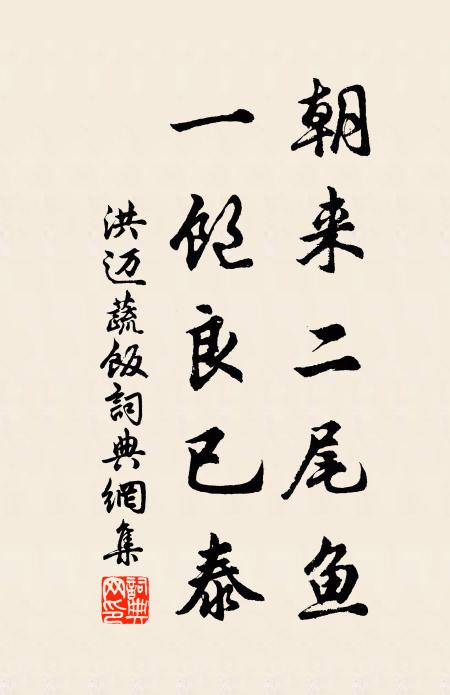 朝来二尾鱼
一飽良已泰
洪迈蔬飯詞典網集
詞典网印